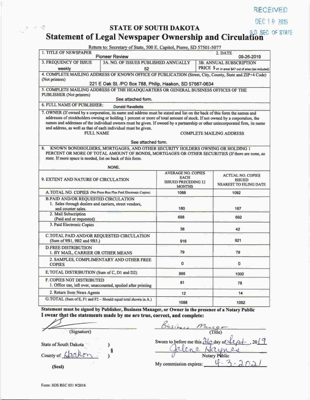 RECEIVED
DEC 19 2015
S.D. SEC. OF STATE
STATE OF SOUTH DAKOTA
Statement of Legal Newspaper Ownership and Circulation
Return to: Secretary of State, 500 E. Capitol, Pierre, SD 57501-5077
1. TITLE OF NEWSPAPER
Pioneer Review
2. DATE
09-26-2019
3. FREQUENCY OF ISSUE
weekly
3A. NO. OF ISSUES PUBLISHED ANNUALLY
52
3B. ANNUAL SUBSCRIPTION
PRICE $
4. COMPLETE MAILING ADDRESS OF KNOWN OFFICE OF PUBLICATION (Street, City, County, State and ZIP+4 Code)
(Not Printers)
221 E Oak St, PO Box 788, Philip, Haakon, SD 57567-0634
5. COMPLETE MAILING ADDRESS OF THE HEADQUARTERS OR GENERAL BUSINESS OFFICES OF THE
PUBLISHER (Not Printers)
See attached form.
6. FULL NAME OF PUBLISHER:
Donald Ravellette
7. OWNER (If owned by a corporation, its name and address must be stated and list on the back of this form the names and
addresses of stockholders owning or holding 1 percent or more of total amount of stock. If not owned by a corporation, the
names and addresses of the individual owners must be given. If owned by a partnership or other unincorporated firm, its name
and address, as well as that of each individual must be given.
FULL NAME COMPLETE MAILING ADDRESS
See attached form.
8. KNOWN BONDHOLDERS, MORTGAGEES, AND OTHER SECURITY HOLDERS OWNING OR HOLDING 1
PERCENT OR MORE OF TOTAL AMOUNT OF BONDS, MORTGAGES OR OTHER SECURITIES (If there are none, so
state. If more space is needed, list on back of this form.
NONE.
9. EXTENT AND NATURE OF CIRCULATION
AVERAGE NO. COPIES
EACH
ISSUED PRECEDING 12
MONTHS
ACTUAL NO. COPIES
ISSUED
NEAREST TO FILING DATE
A. TOTAL NO. COPIES (Net Press Run Plus Paid Electronic Copies) 1088 1092
B. PAID AND/OR REQUESTED CIRCULATION
1. Sales through dealers and carriers, street vendors,
and counter sales.
2. Mail Subscription
(Paid and or requested)
3. Paid Electronic Copies 38 42
C. TOTAL PAID AND/OR REQUESTED CIRCULATION
(Sum of 9B1, 9B2 and 9B3.) 921
D. FREE DISTRIBUTION
1. BY MAIL, CARRIER OR OTHER MEANS 79 79
2. SAMPLES, COMPLIMENTARY AND OTHER FREE
COPIES 0 0
E. TOTAL DISTRIBUTION (Sum of C, D1 and D2) 1000
F. COPIES NOT DISTRIBUTED
1. Office use, left over, unaccounted, spoiled after printing 81 78
2. Return from News Agents 12 14
G. TOTAL (Sum of E, F1 and F2 - Should equal total shown in A.) 1088 1092
Statement must be signed by Publisher, Business Manager, or Owner in the presence of a Notary Public
I swear that the statements made by me are true, correct, and complete:
Business Manager
(Signature) (Title)
State of South Dakota )
§
County of Haakon )
Sworn to before me this 26 day of Sept., 2019
Jolene Haynes
Notary Public
(Seal)
My commission expires: 9-3-2021
Form: SOS REC 051 9/2016